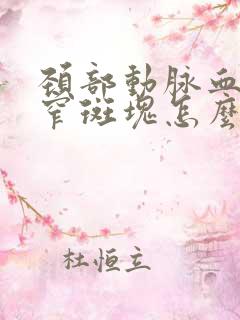 頸部動脉血
窄斑塊怎麼
杜恒立